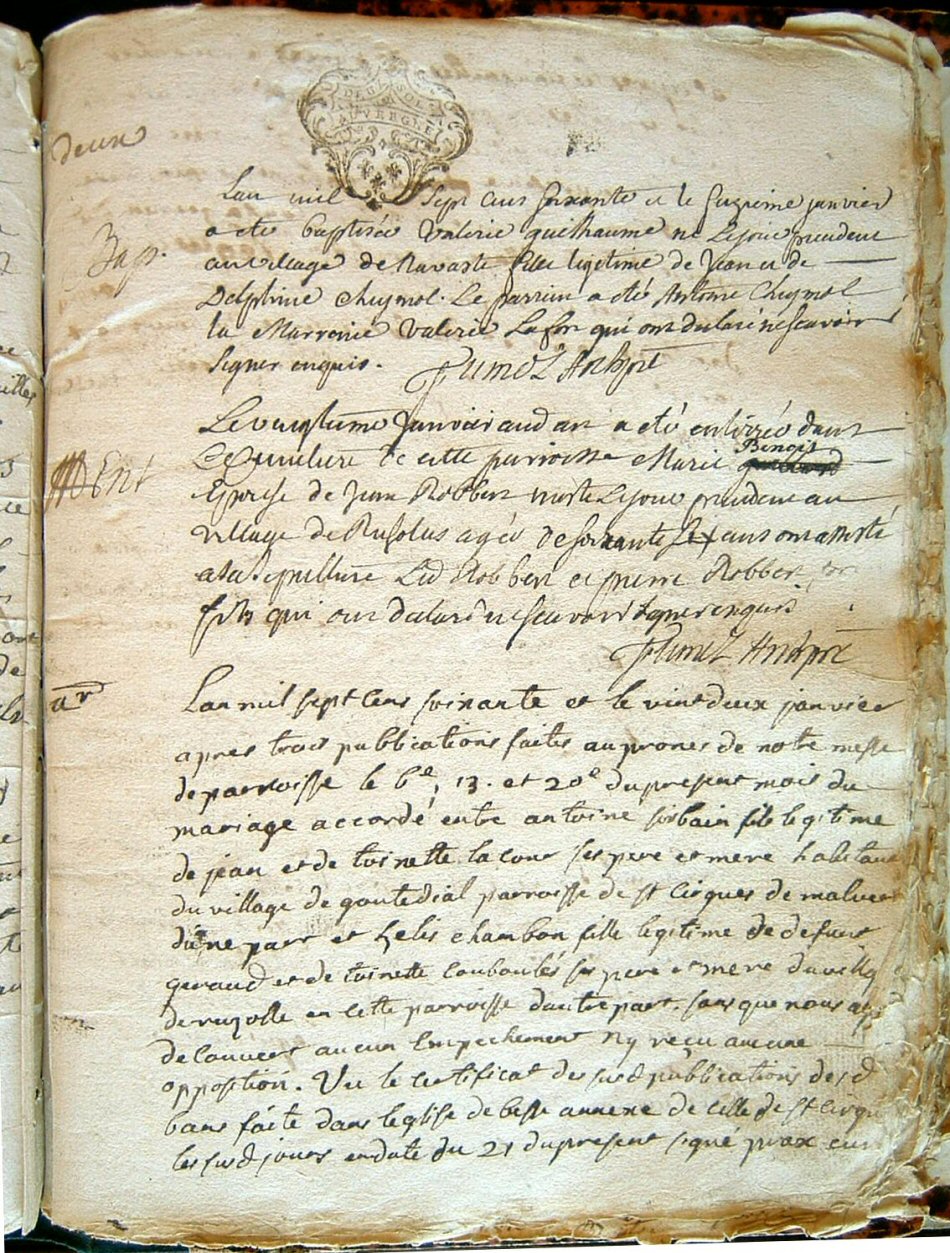 deux
DEUX SOLS
AUVERGNE
Bap.
Lan mil Sept cens soixante et le Onzieme janvier
a eté baptisée Valerie guilhaume né Lejour precedent
au village de Navaste fille legitime de Jean et de
Delphine Cheymol. Le parrin a eté Antoine Cheymol
la Marrenie Valerie Lafon qui ont declaré ne scavoir
signer enquis.
Ent
Le Janvier aud an a eté enterrée dans
Le Cimetiere de cette parroisse Marie Benois
Epouse de Jean Robbert morte Lejour precedent au
village de Rusolus agée de soixante six ans ont assisté
a la sepulture Led Robbert et pierre Robbert son
fils qui ont declaré ne scavoir signer enquis
ar
Lan mil sept cens soixante et le vint deux janvier
apres trois publications faites au prones de notre messe
de parroisse le 6e, 13. et 20e du present mois du
mariage accordé entre antoine sorbain fils legitime
de jean et de toinette lacour ses pere et mere habitant
du village de goutedial parroisse de st Cirgues de malvert
dune part et helis chambon fille legitime de defunt
geraud et de toinette couboulés ses pere et mere du villag
de ruzolle en cette parroisse dautre part. sans que nous aye
decouvert aucun Empechement ny reçu aucune
opposition. Vu le certificat des susd publications desd
bans faite dans leglise de besse annexe de celle de st Cirgue
les susd jours en date du 21 du present signé prax curé